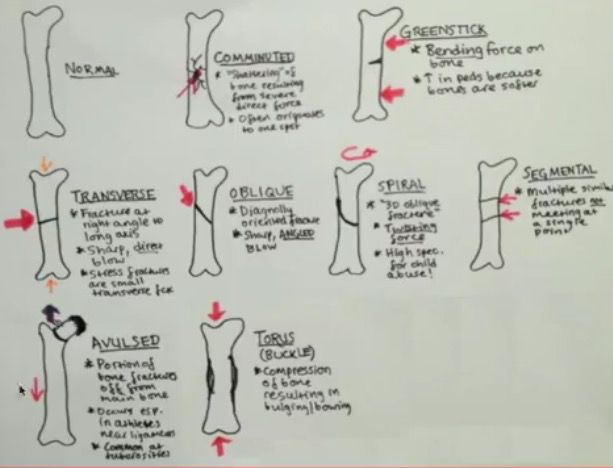 NORMAL
COMMINUTED
* "Shattering" of
bone resulting
from severe
direct force
* Often originates
to one spot
GREENSTICK
* Bending force on
bone
* ↑ in peds because
bones are softer
TRANSVERSE
* Fracture at
right angle to
long axis
* Sharp, direct
blow
* Stress fractures
are small
transverse fck
OBLIQUE
* Diagnolly
oriented fracture
* Sharp, ANGLED
BLOW
SPIRAL
* "3D oblique
fracture"
* Twisting
force
* High spec.
for child
abuse!
SEGMENTAL
* Multiple similar
fractures not
meeting at
a single
point
AVULSED
* Portion of
bone fractures
off from
main bone
* Occurs esp.
in athletes
near ligaments
* Common at
tuberosities
TORUS
(BUCKLE)
* Compression
of bone
resulting in
bulging/bowing